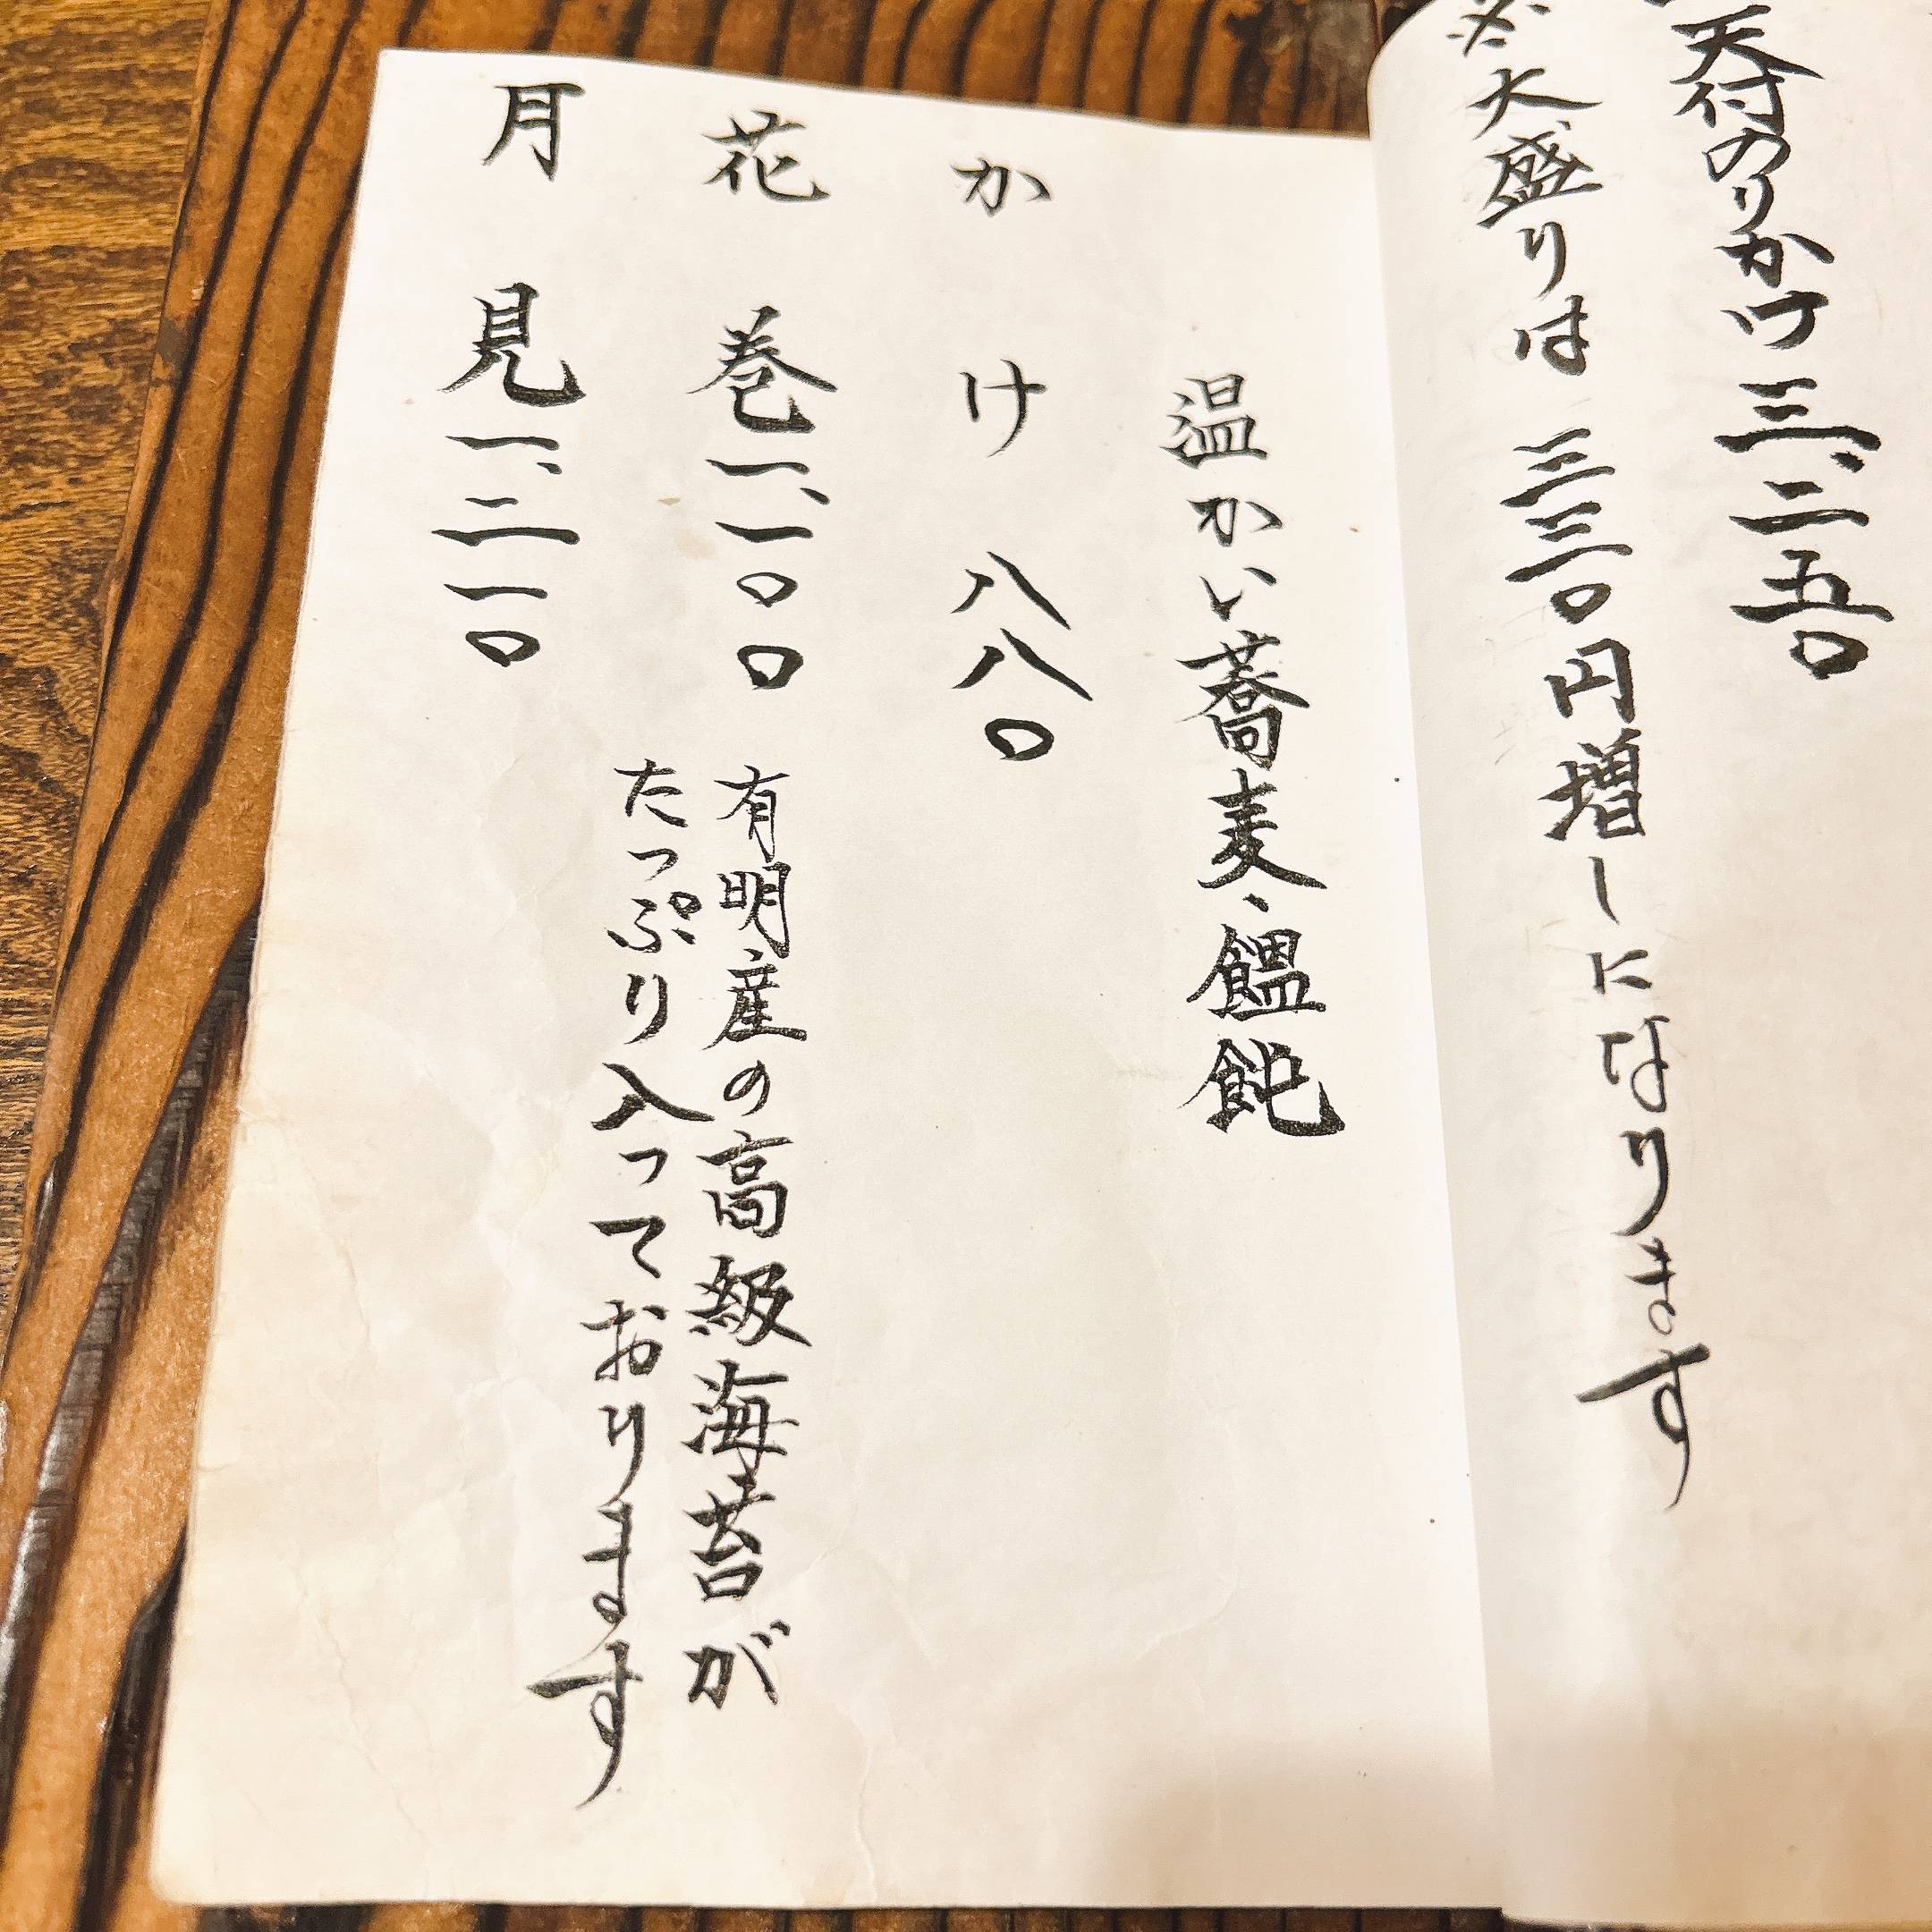 天付のりかけ 三、二五〇
※大盛りは 三三〇円増しになります
温かい蕎麦、饂飩
かけ 八八〇
花巻 一、一〇〇
有明産の高級海苔が
たっぷり入っております
月見 一、二一〇